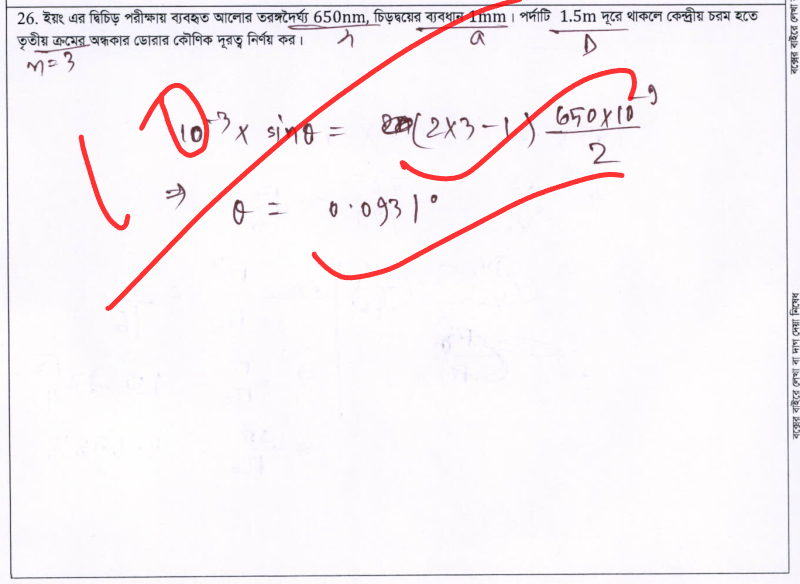 26. ইয়ং এর দ্বিচিড় পরীক্ষায় ব্যবহৃত আলোর তরঙ্গদৈর্ঘ্য 650nm, চিড়দ্বয়ের ব্যবধান 1mm। পর্দাটি 1.5m দূরে থাকলে কেন্দ্রীয় চরম হতে
তৃতীয় ক্রমের অন্ধকার ডোরার কৌণিক দূরত্ব নির্ণয় কর।
λ a D
n = 3
10^-3 × sinθ = (2×3-1) 650×10^-9 / 2
⇒ θ = 0.0931°
বক্সের বাইরে লেখা বা দাগ দেয়া নিষেধ